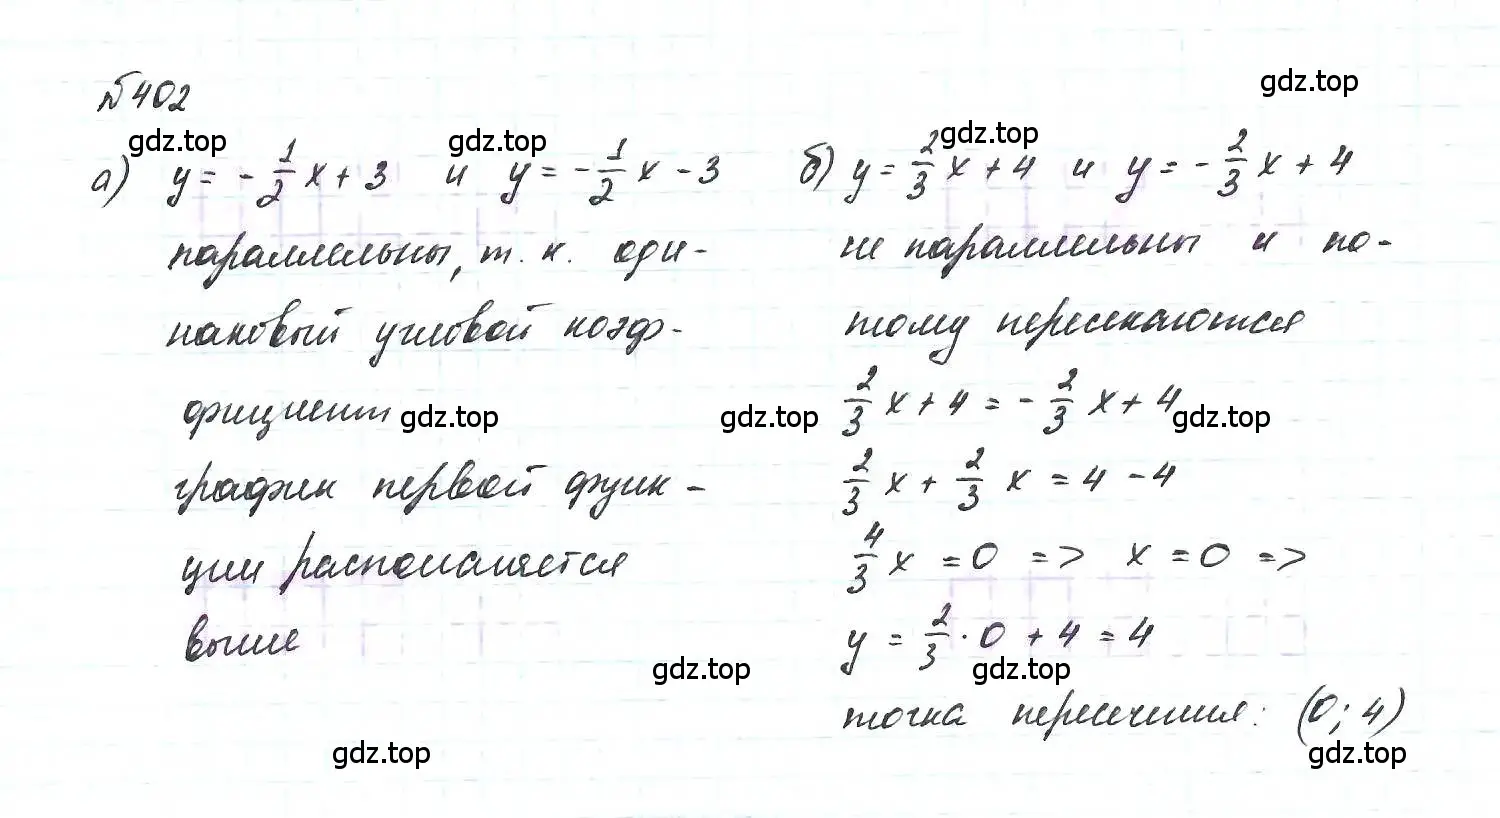 №402
а) y = -1/2 x + 3 и y = -1/2 x - 3
параллельны, т. к. оди-
наковый угловой коэф-
фициент
график первой функ-
ции располагается
выше
б) y = 2/3 x + 4 и y = -2/3 x + 4
не параллельны и по-
тому пересекаются
2/3 x + 4 = -2/3 x + 4
2/3 x + 2/3 x = 4 - 4
4/3 x = 0 => x = 0 =>
y = 2/3 · 0 + 4 = 4
точка пересечения: (0; 4)
gdz.top
gdz.top
gdz.top
gdz.top
gdz.top
gdz.top
gdz.top
gdz.top
gdz.top
gdz.top
gdz.top